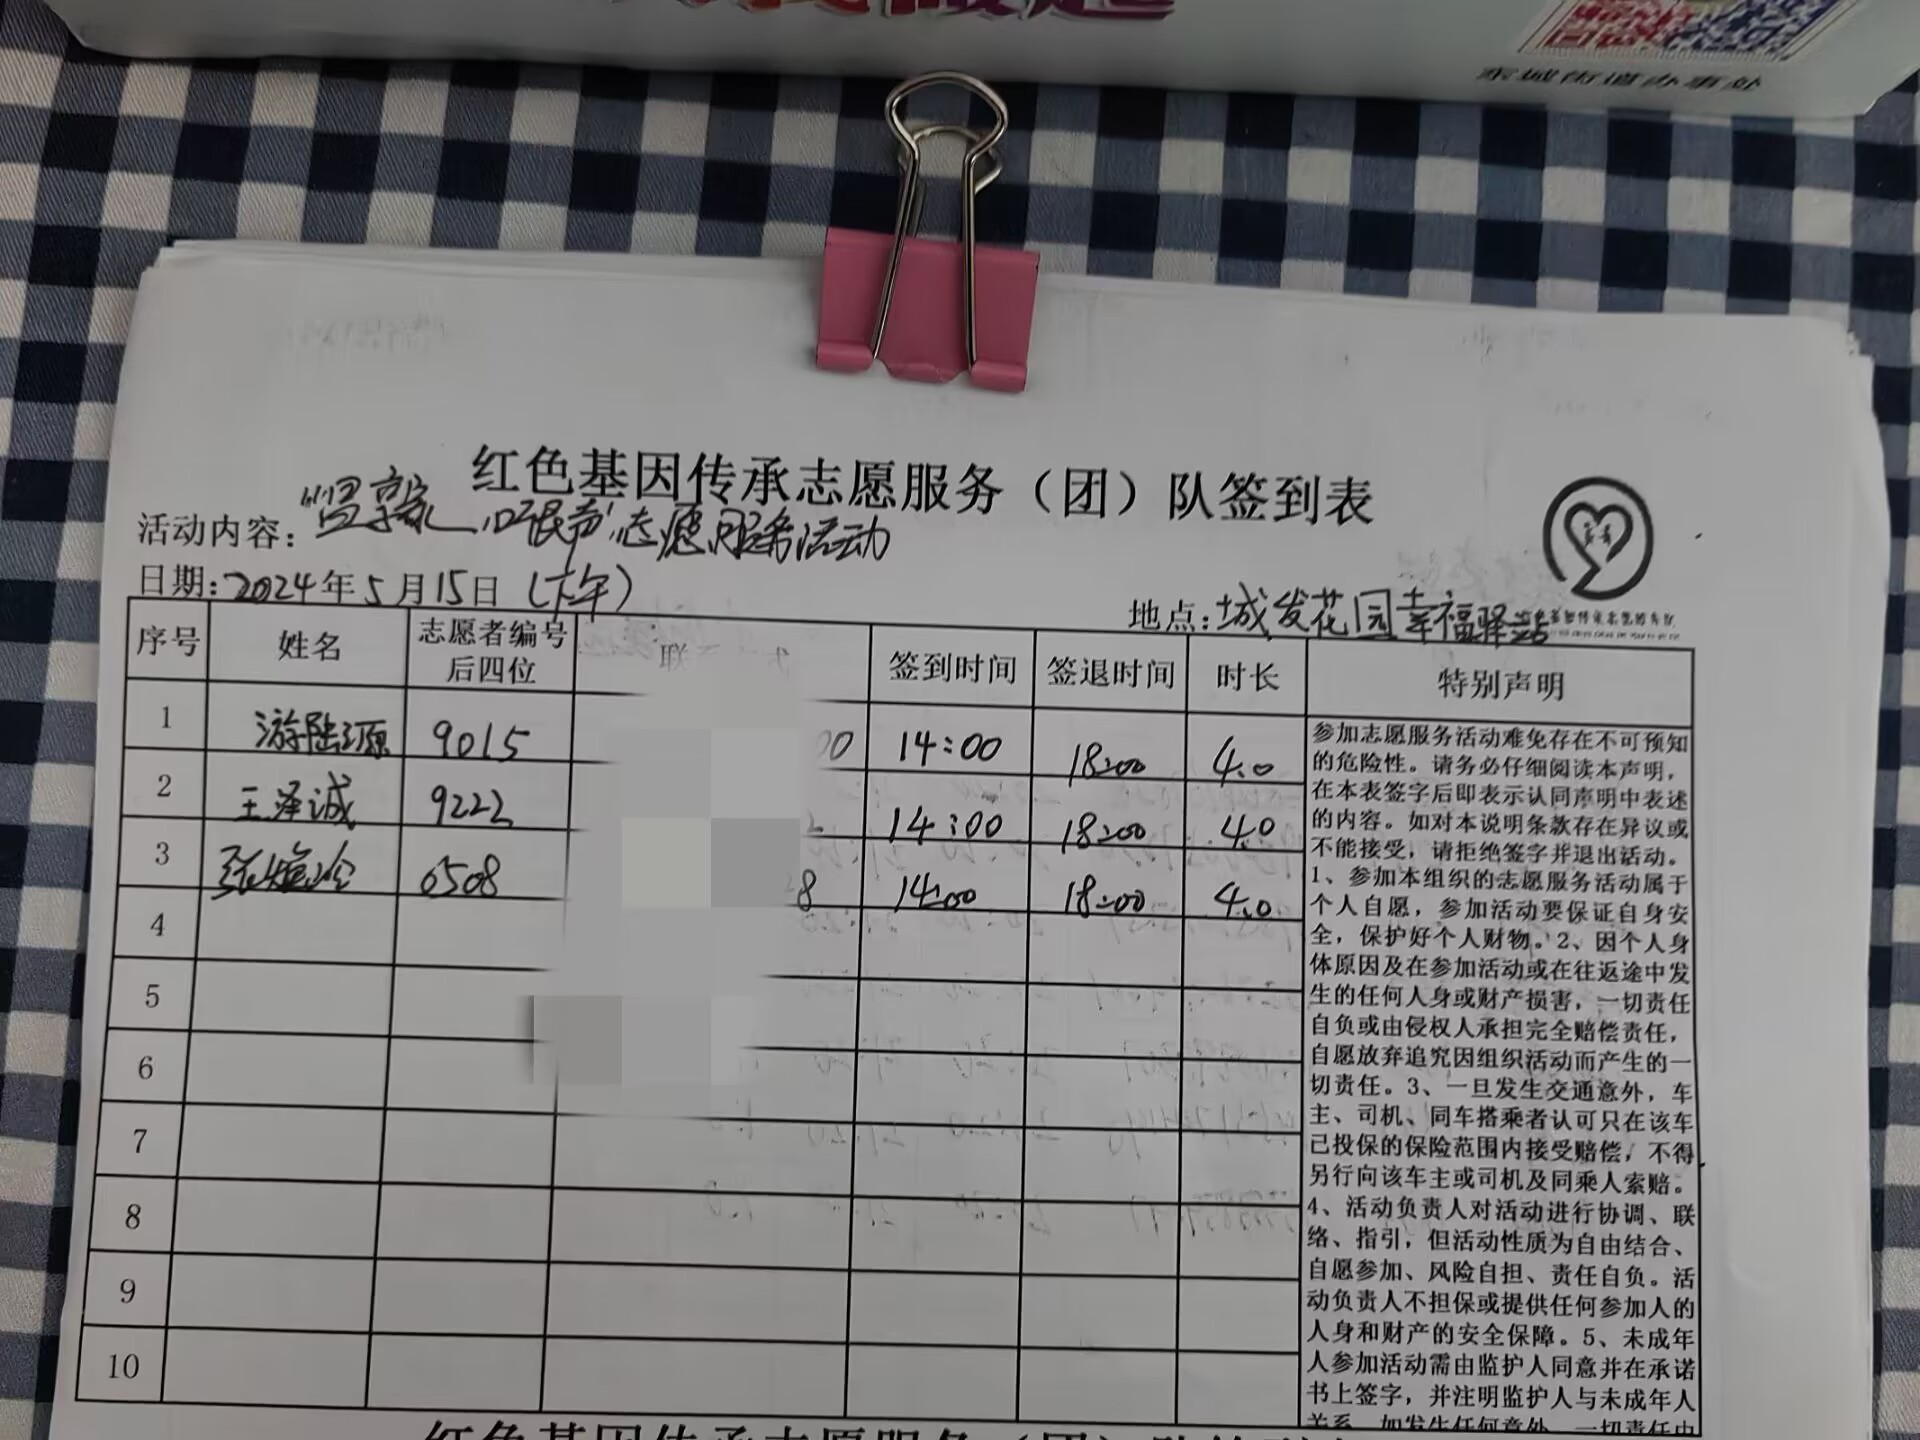 东城街道办事处
红色基因传承志愿服务（团）队签到表
活动内容：志愿服务活动
日期：2024年5月15日（下午）
地点：城发花园幸福驿站
序号 姓名 志愿者编号后四位 联 签到时间 签退时间 时长 特别声明
1 游陆源 9015 00 14:00 18:00 4.0
2 王泽诚 9223 14:00 18:00 4.0
3 张 6508 8 14:00 18:00 4.0
4
5
6
7
8
9
10
参加志愿服务活动难免存在不可预知
的危险性。请务必仔细阅读本声明，
在本表签字后即表示认同声明中表述
的内容。如对本说明条款存在异议或
不能接受，请拒绝签字并退出活动。
1、参加本组织的志愿服务活动属于
个人自愿，参加活动要保证自身安
全，保护好个人财物。2、因个人身
体原因及在参加活动或在往返途中发
生的任何人身或财产损害，一切责任
自负或由侵权人承担完全赔偿责任，
自愿放弃追究因组织活动而产生的一
切责任。3、一旦发生交通意外，车
主、司机、同车搭乘者认可只在该车
已投保的保险范围内接受赔偿，不得
另行向该车主或司机及同乘人索赔。
4、活动负责人对活动进行协调、联
络、指引，但活动性质为自由结合、
自愿参加、风险自担、责任自负。活
动负责人不担保或提供任何参加人的
人身和财产的安全保障。5、未成年
人参加活动需由监护人同意并在承诺
书上签字，并注明监护人与未成年人
关系，如发生任何意外，一切责任由
红色基因传承志愿服务（团）队签到